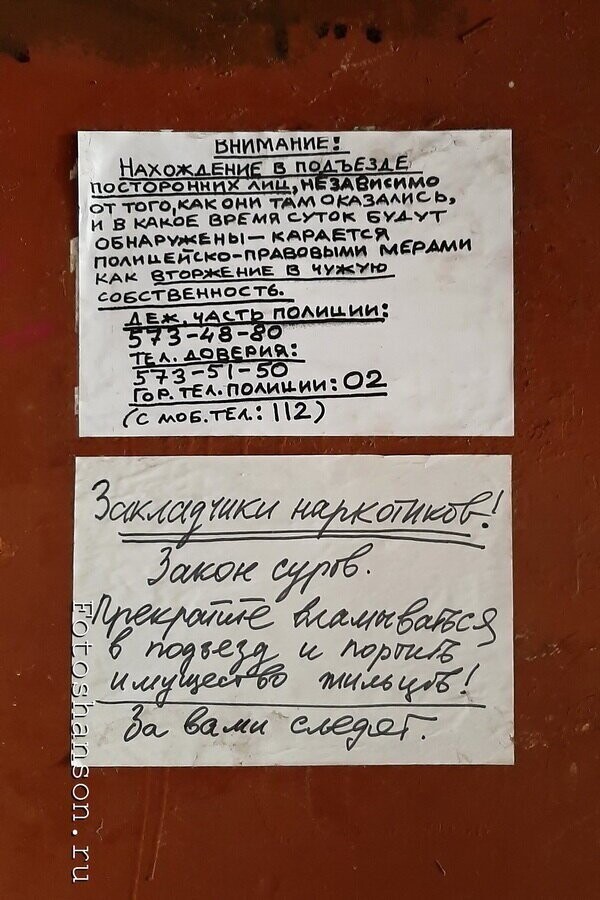 ВНИМАНИЕ!
НАХОЖДЕНИЕ В ПОДЪЕЗДЕ
ПОСТОРОННИХ ЛИЦ, НЕЗАВИСИМО
ОТ ТОГО, КАК ОНИ ТАМ ОКАЗАЛИСЬ,
И В КАКОЕ ВРЕМЯ СУТОК БУДУТ
ОБНАРУЖЕНЫ — КАРАЕТСЯ
ПОЛИЦЕЙСКО-ПРАВОВЫМИ МЕРАМИ
КАК ВТОРЖЕНИЕ В ЧУЖУЮ
СОБСТВЕННОСТЬ.
ДЕЖ. ЧАСТЬ ПОЛИЦИИ:
573-48-80
ТЕЛ. ДОВЕРИЯ:
573-51-50
ГОР. ТЕЛ. ПОЛИЦИИ: 02
(С МОБ. ТЕЛ.: 112)
Закладчики наркотиков!
Закон суров.
Прекратите вламываться
в подъезд и портить
имущество жильцов!
За вами следят.
Fotoshanson.ru